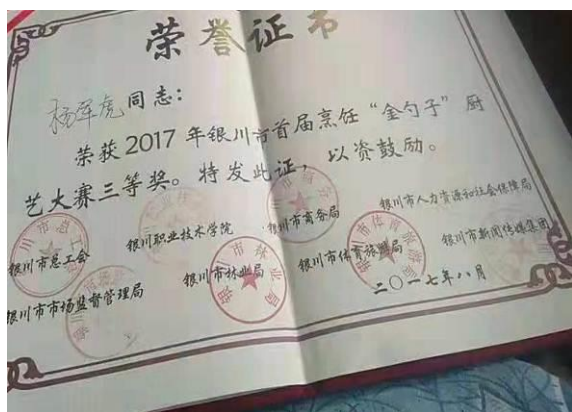 荣誉证书
杨军虎同志：
荣获2017年银川市首届烹饪“金勺子”厨
艺大赛三等奖。特发此证，以资鼓励。
银川市总工会 银川职业技术学院 银川市商务局 银川市人力资源和社会保障局
银川市市场监督管理局 银川市林业局 银川市体育旅游局 银川市新闻传媒集团
二〇一七年八月